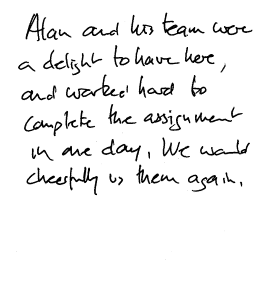 Alan and his team were
a delight to have here,
and worked hard to
complete the assignment
in one day. We would
cheerfully us them again.